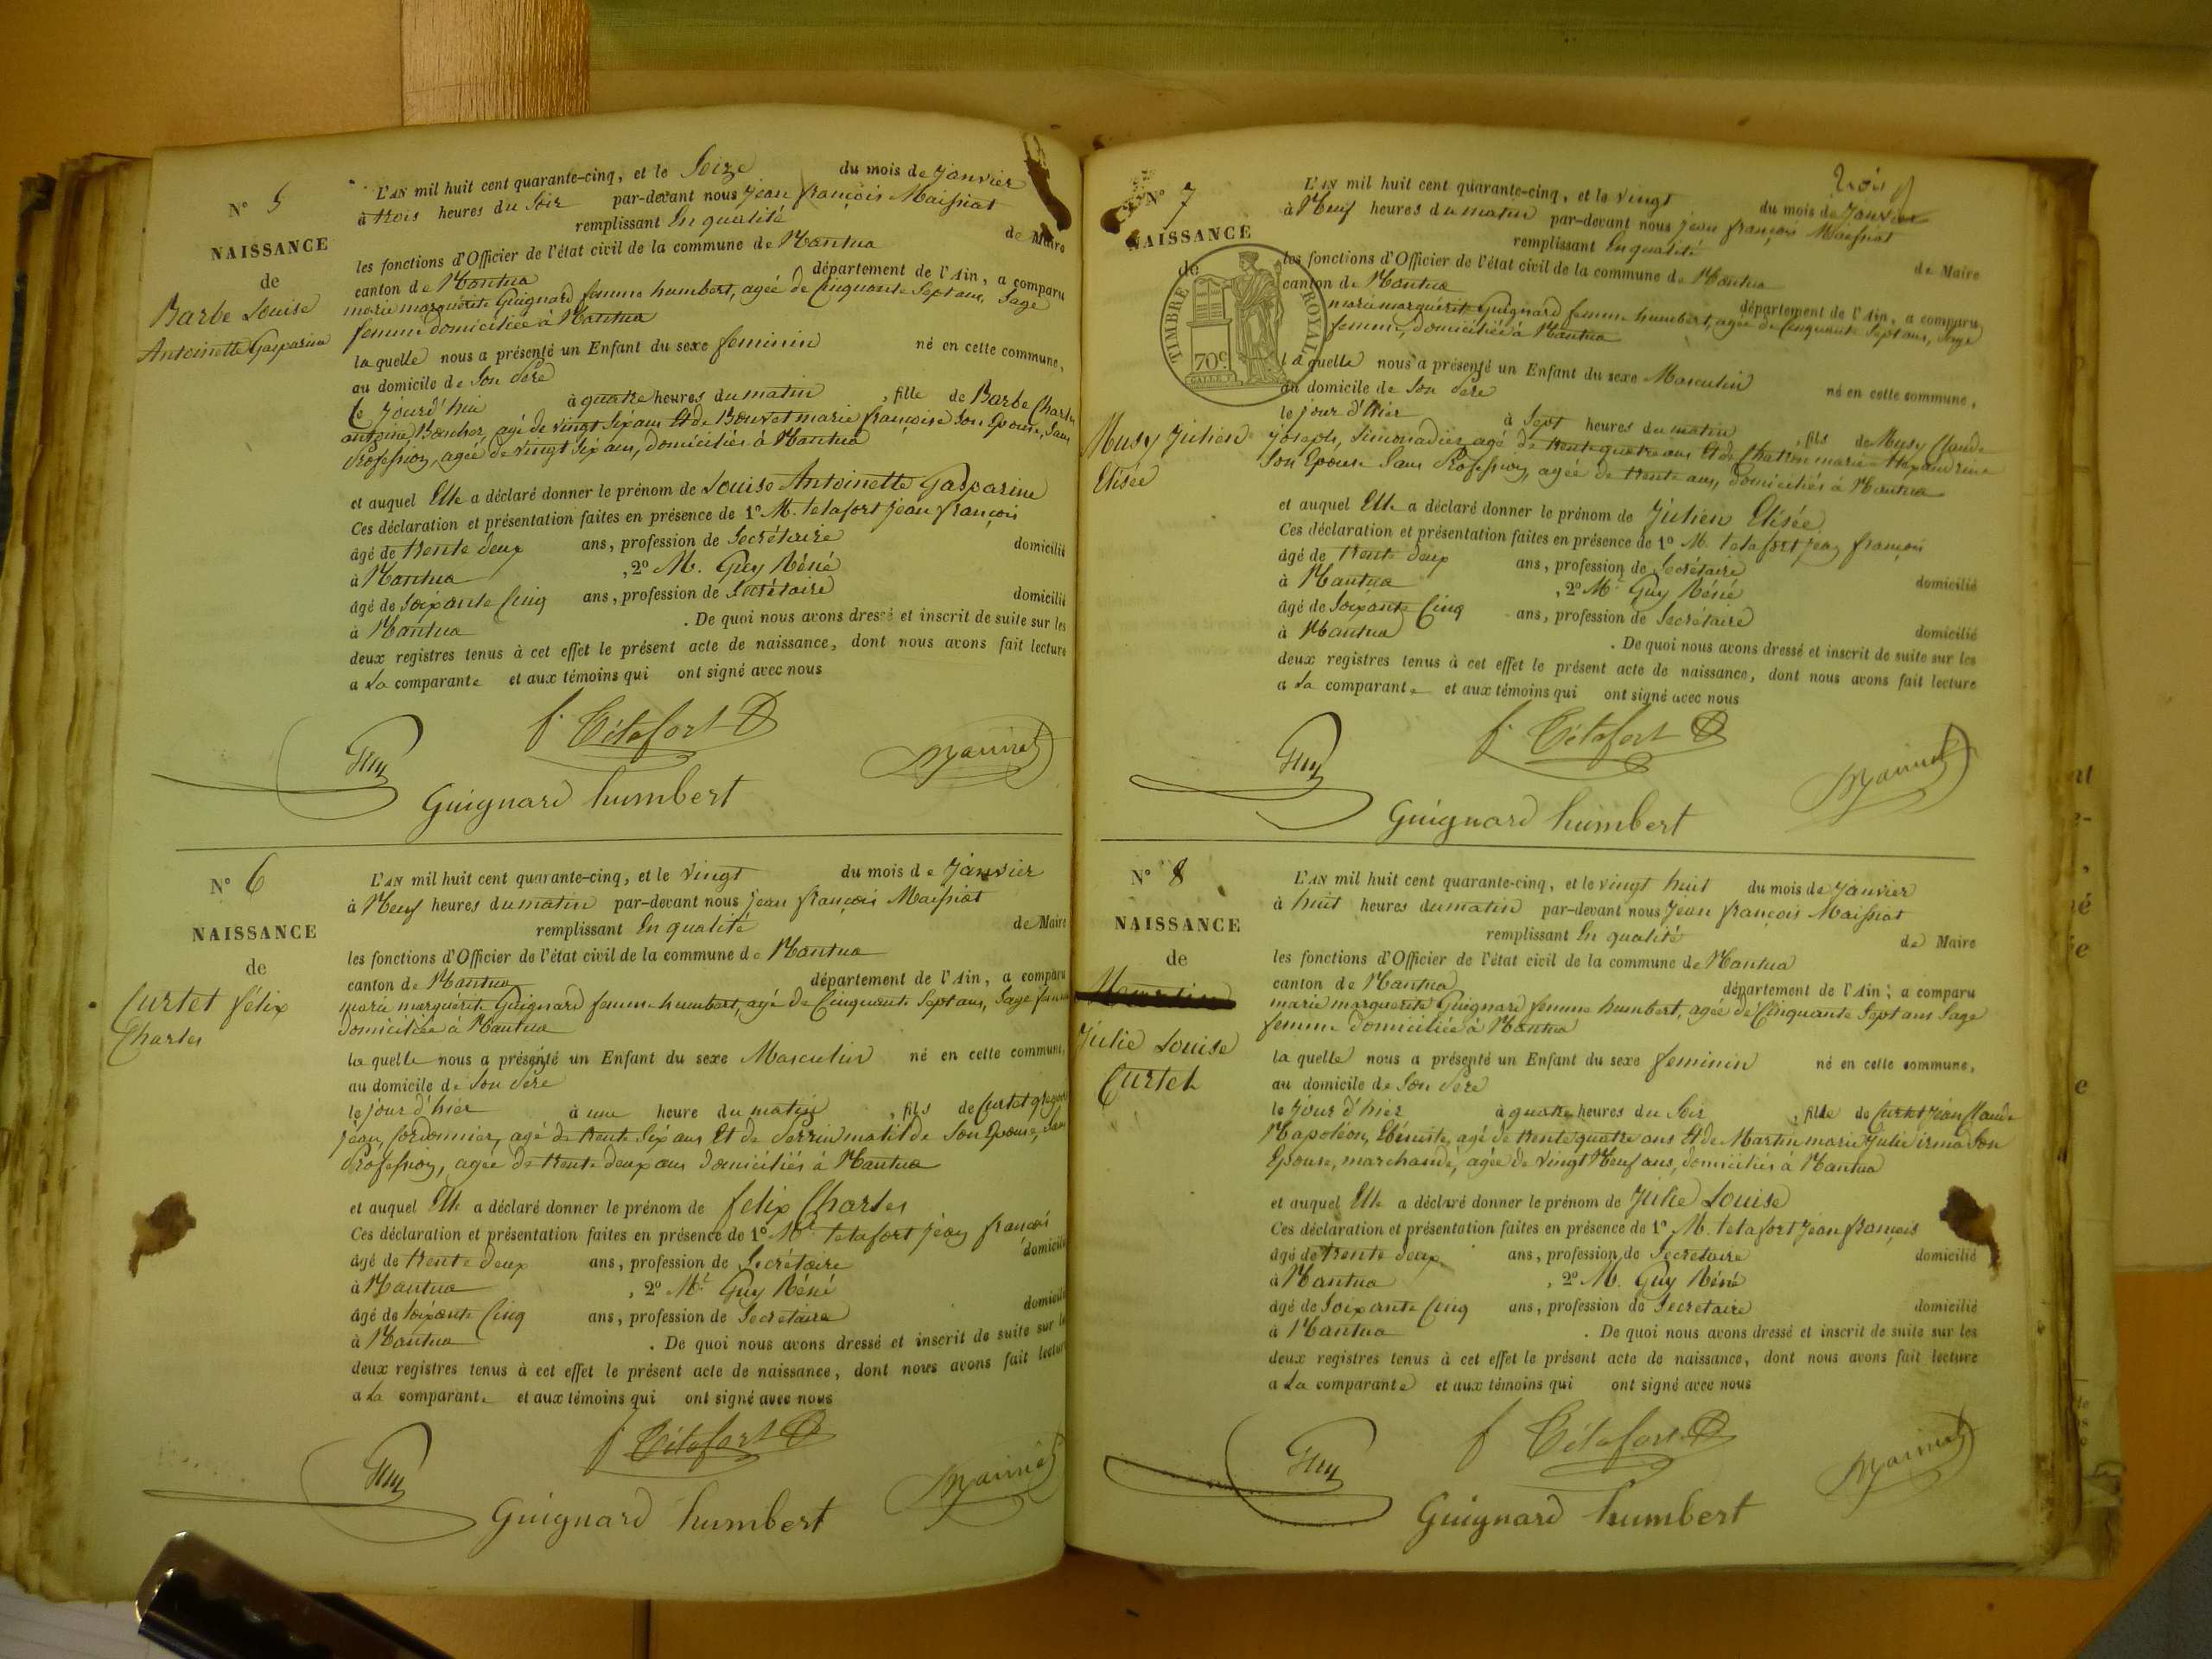 N° 5
NAISSANCE
de
Barbe Louise
Antoinette Gasparine
L'AN mil huit cent quarante-cinq, et le Seize du mois de Janvier
à trois heures du Soir par-devant nous Jean françois Maissiat
remplissant En qualité de Maire
les fonctions d'Officier de l'état civil de la commune de Nantua
canton de Nantua département de l'Ain, a comparu
marie marguerite Guignard femme humbert, agée de Cinquante Sept ans, Sage
femme domiciliée à Nantua
la quelle nous a présenté un Enfant du sexe feminin né en cette commune,
au domicile de Son Père
Ce Jourd'hui à quatre heures du matin, fille de Barbe Charles
antoine Boucher, agé de vingt Six ans Et de Bouvet marie françoise Son Epouse, Sans
Profession, agée de vingt Six ans, domiciliés à Nantua
et auquel Elle a déclaré donner le prénom de Louise Antoinette Gasparine
Ces déclaration et présentation faites en présence de 1° M. tetafort Jean françois
âgé de trente deux ans, profession de Secrétaire domicilié
à Nantua, 2° M. Guy Réné
âgé de Soixante Cinq ans, profession de Secrétaire domicilié
à Nantua. De quoi nous avons dressé et inscrit de suite sur les
deux registres tenus à cet effet le présent acte de naissance, dont nous avons fait lecture
a La comparante et aux témoins qui ont signé avec nous
f. Tétafort
Guy
Guignard humbert
N° 6
NAISSANCE
de
Curtet félix
Charles
L'AN mil huit cent quarante-cinq, et le Vingt du mois de Janvier
à Neuf heures du matin par-devant nous Jean françois Maissiat
remplissant En qualité de Maire
les fonctions d'Officier de l'état civil de la commune de Nantua
canton de Nantua département de l'Ain, a comparu
marie marguerite Guignard femme humbert, agé de Cinquante Sept ans, Sage femme
domiciliée à Nantua
la quelle nous a présenté un Enfant du sexe Masculin né en cette commune,
au domicile de Son Père
le jour d'hier à une heure du matin, fils de Curtet
jean, Cordonnier, agé de trente Six ans Et de Perrin matilde Son Epouse, Sans
Profession, agée de trente deux ans domiciliés à Nantua
et auquel Elle a déclaré donner le prénom de felix Charles
Ces déclaration et présentation faites en présence de 1° Mr tetafort Jean françois
âgé de trente deux ans, profession de Secrétaire domicilié
à Nantua, 2° Mr Guy Réné
âgé de soixante Cinq ans, profession de Secretaire domicilié
à Nantua. De quoi nous avons dressé et inscrit de suite sur les
deux registres tenus à cet effet le présent acte de naissance, dont nous avons fait lecture
a La comparante et aux témoins qui ont signé avec nous
f Tétafort
Guy
Guignard humbert
trois
N° 7
NAISSANCE
de
TIMBRE ROYAL
70c
Musy Julien
Elisée
L'AN mil huit cent quarante-cinq, et le Vingt du mois de Janvier
à Neuf heures du matin par-devant nous Jean françois Maissiat
remplissant En qualité de Maire
les fonctions d'Officier de l'état civil de la commune de Nantua
canton de Nantua département de l'Ain, a comparu
marie marguerite Guignard femme humbert, agée de Cinquante Sept ans, Sage
femme, domiciliée à Nantua
la quelle nous a présenté un Enfant du sexe Masculin né en cette commune,
au domicile de Son Père
le jour d'hier à Sept heures du matin, fils de Musy Claude
joseph, Limonadier, agé de trente quatre ans Et de Chatron marie
Son Epouse Sans Profession, agée de trente ans, domiciliés à Nantua
et auquel Elle a déclaré donner le prénom de Julien Elisée
Ces déclaration et présentation faites en présence de 1° M. tetafort Jean françois
âgé de trente deux ans, profession de Secrétaire domicilié
à Nantua, 2° Mr Guy Réné
âgé de Soixante Cinq ans, profession de Secrétaire domicilié
à Nantua. De quoi nous avons dressé et inscrit de suite sur les
deux registres tenus à cet effet le présent acte de naissance, dont nous avons fait lecture
a La comparante et aux témoins qui ont signé avec nous
f. Tétafort
Guy
Guignard humbert
N° 8
NAISSANCE
de
Julie Louise
Curtet
L'AN mil huit cent quarante-cinq, et le vingt huit du mois de Janvier
à huit heures du matin par-devant nous Jean françois Maissiat
remplissant En qualité de Maire
les fonctions d'Officier de l'état civil de la commune de Nantua
canton de Nantua département de l'Ain, a comparu
marie marguerite Guignard femme humbert, agée de Cinquante Sept ans Sage
femme domiciliée à Nantua
la quelle nous a présenté un Enfant du sexe feminin né en cette commune,
au domicile de Son Père
le Jour d'hier à quatre heures du Soir, fille de Curtet Jean Claude
Napoléon, Ebéniste, agé de trente quatre ans Et de Martin marie Julie irma Son
Epouse, marchande, agée de vingt Neuf ans, domiciliés à Nantua
et auquel Elle a déclaré donner le prénom de Julie Louise
Ces déclaration et présentation faites en présence de 1° M. tetafort Jean françois
âgé de trente deux ans, profession de Secretaire domicilié
à Nantua, 2° M. Guy Réné
âgé de Soixante Cinq ans, profession de Secretaire domicilié
à Nantua. De quoi nous avons dressé et inscrit de suite sur les
deux registres tenus à cet effet le présent acte de naissance, dont nous avons fait lecture
a La comparante et aux témoins qui ont signé avec nous
f Tétafort
Guy
Guignard humbert